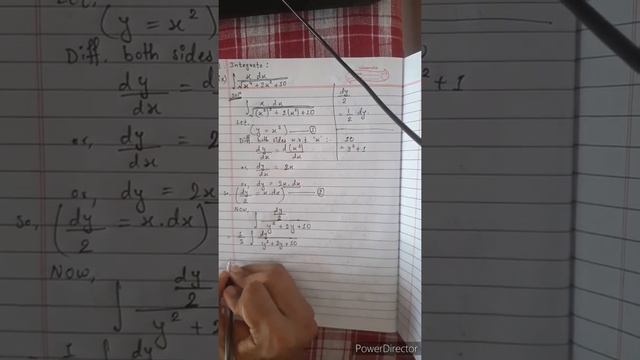 Integrate:
∫ x dx / √(x⁴ + 2x² + 10)
Solⁿ
∫ x dx / √((x²)² + 2(x²) + 10)
Let,
(y = x²) —— ①
Diff both sides w.r.t 'x':
dy/dx = d(x²)/dx
or, dy/dx = 2x
or, dy = 2x.dx
so, (dy/2 = x.dx) —— ②
Now,
∫ (dy/2) / y² + 2y + 10
= 1/2 ∫ dy / y² + 2y + 10
dy/2
= 1/2 dy
10
= 3² + 1
(y = x²)
Diff. both sides
dy/dx =
or, dy/dx =
or, dy = 2x
so, (dy/2 = x.dx)
Now,
∫ (dy/2) / y² + 2
1 ∫ dy
² + 1
PowerDirector